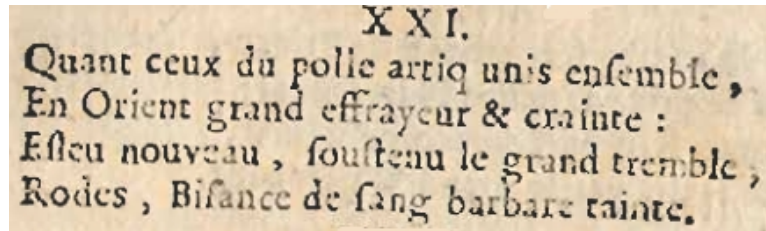 XXI.
Quant ceux du polle artiq unis enſemble,
En Orient grand effrayeur & crainte :
Eſleu nouveau, ſouſtenu le grand tremble,
Rodes, Biſance de ſang barbare tainte.